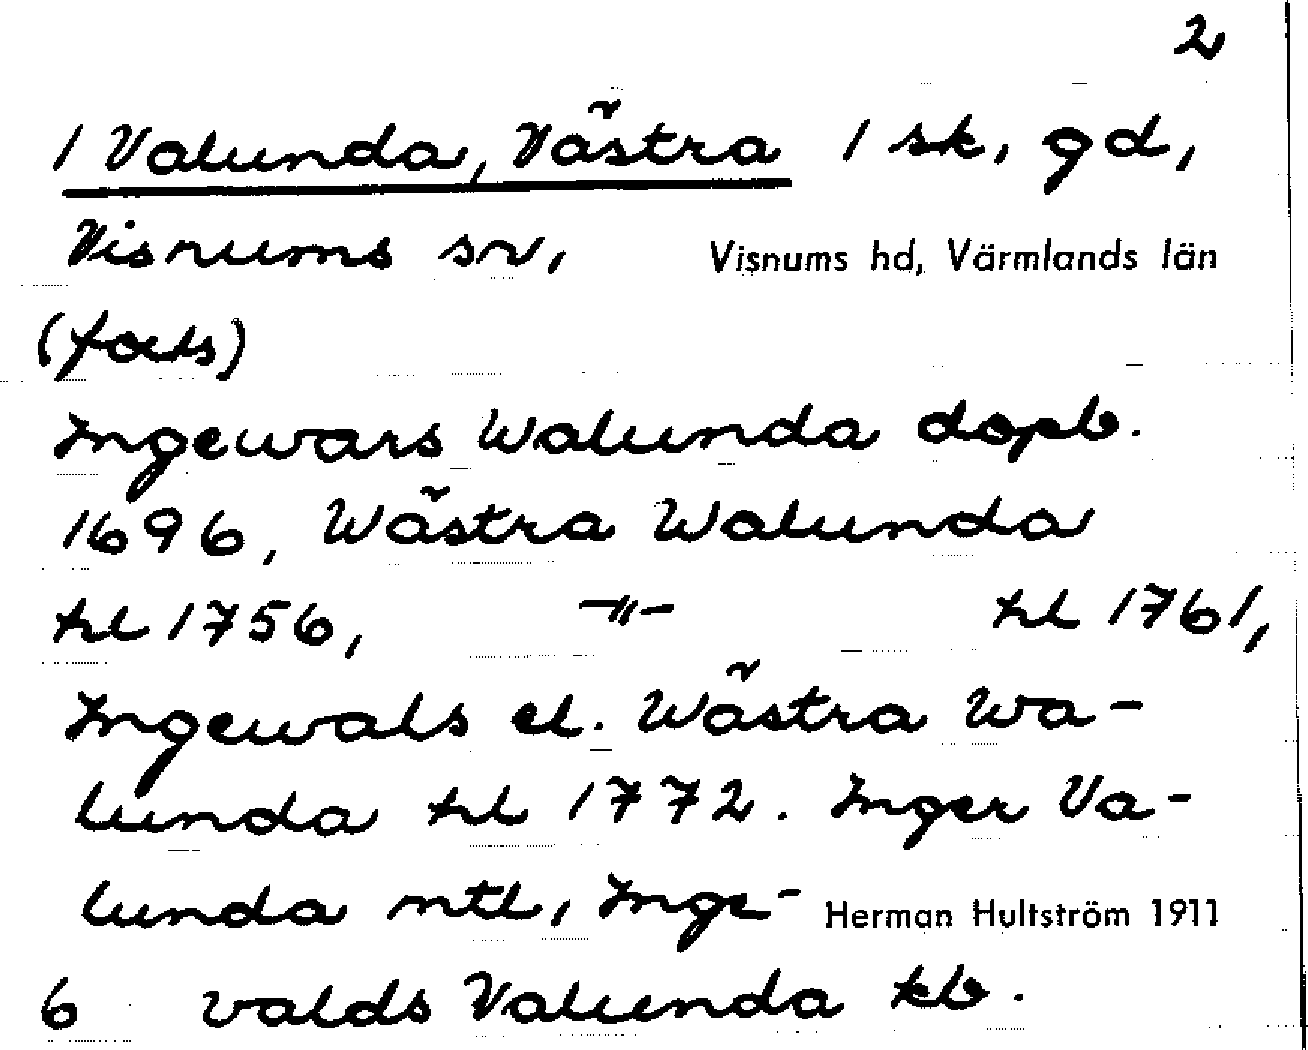 2
1 Valunda, Västra 1 sk, gd,
Visnums sn, Visnums hd, Värmlands län
(forts)
Ingewars Walunda dopb.
1696, Wästra Walunda
hl 1756, -"- hl 1761,
Ingewals el. Wästra Wa-
lunda hl 1772. Inger Va-
lunda mtl, Inge- Herman Hultström 1911
6 valds Valunda kb.